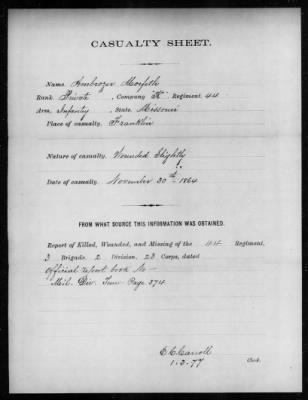 CASUALTY SHEET.
Name, Ambrozer
Rank, Private, Company K, Regiment, 44
Arm, Infantry, State, Missouri
Place of casualty, Franklin
Nature of casualty, Wounded Slightly
Date of casualty, November 30th 1864
FROM WHAT SOURCE THIS INFORMATION WAS OBTAINED.
Report of Killed, Wounded, and Missing of the 44 Regiment,
3 Brigade, 2 Division, 23 Corps, dated
Official report book No—
Mil. Div. Tenn Page 374
E C Carroll
1.3.77 Clerk.